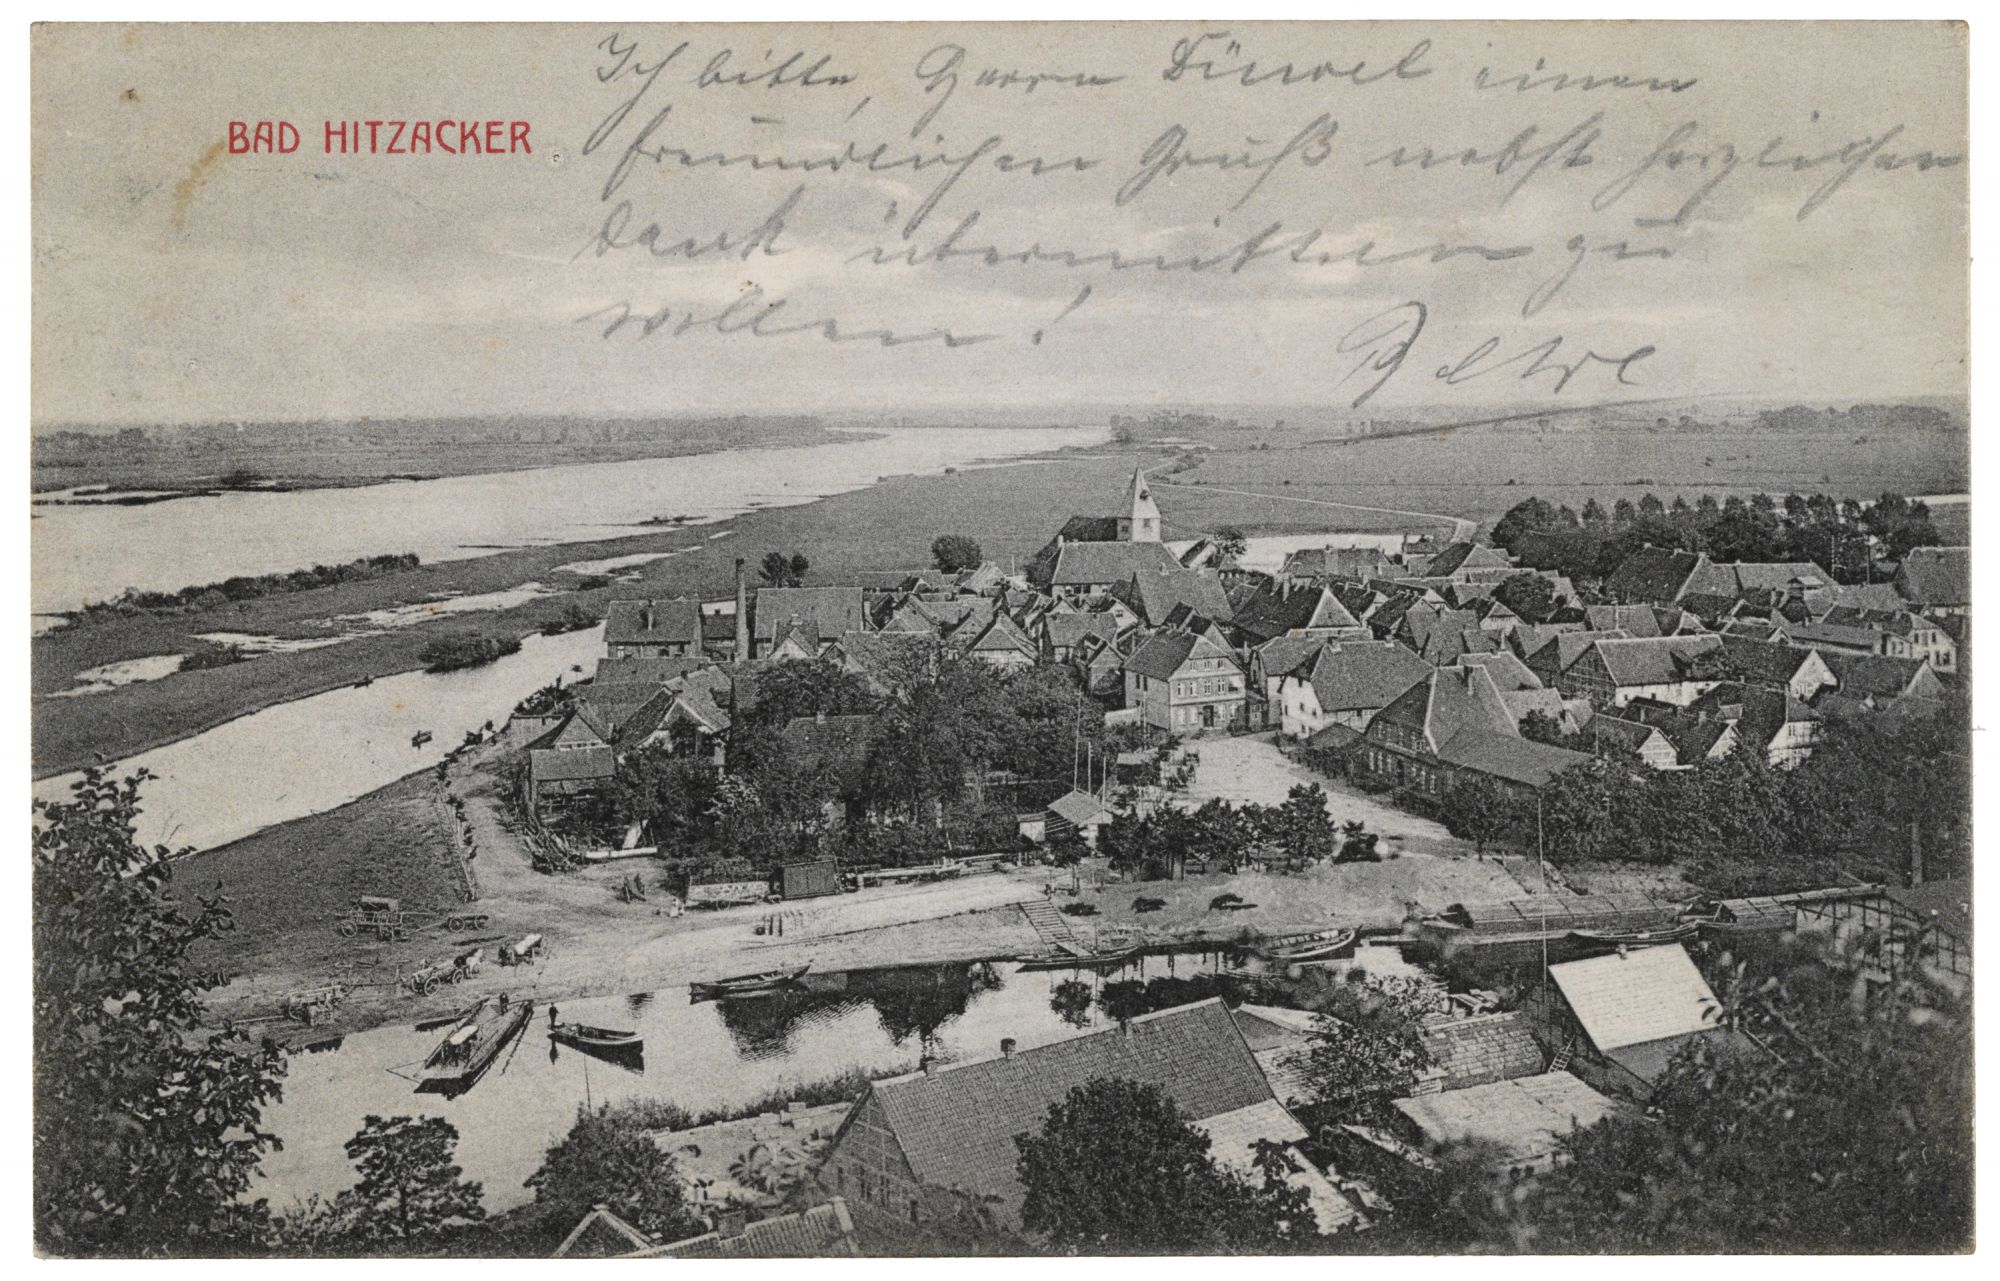 BAD HITZACKER
Ich bitte, Herrn Düwel einen
freundlichen Gruß nebst herzlichen
Dank übermitteln zu
wollen!